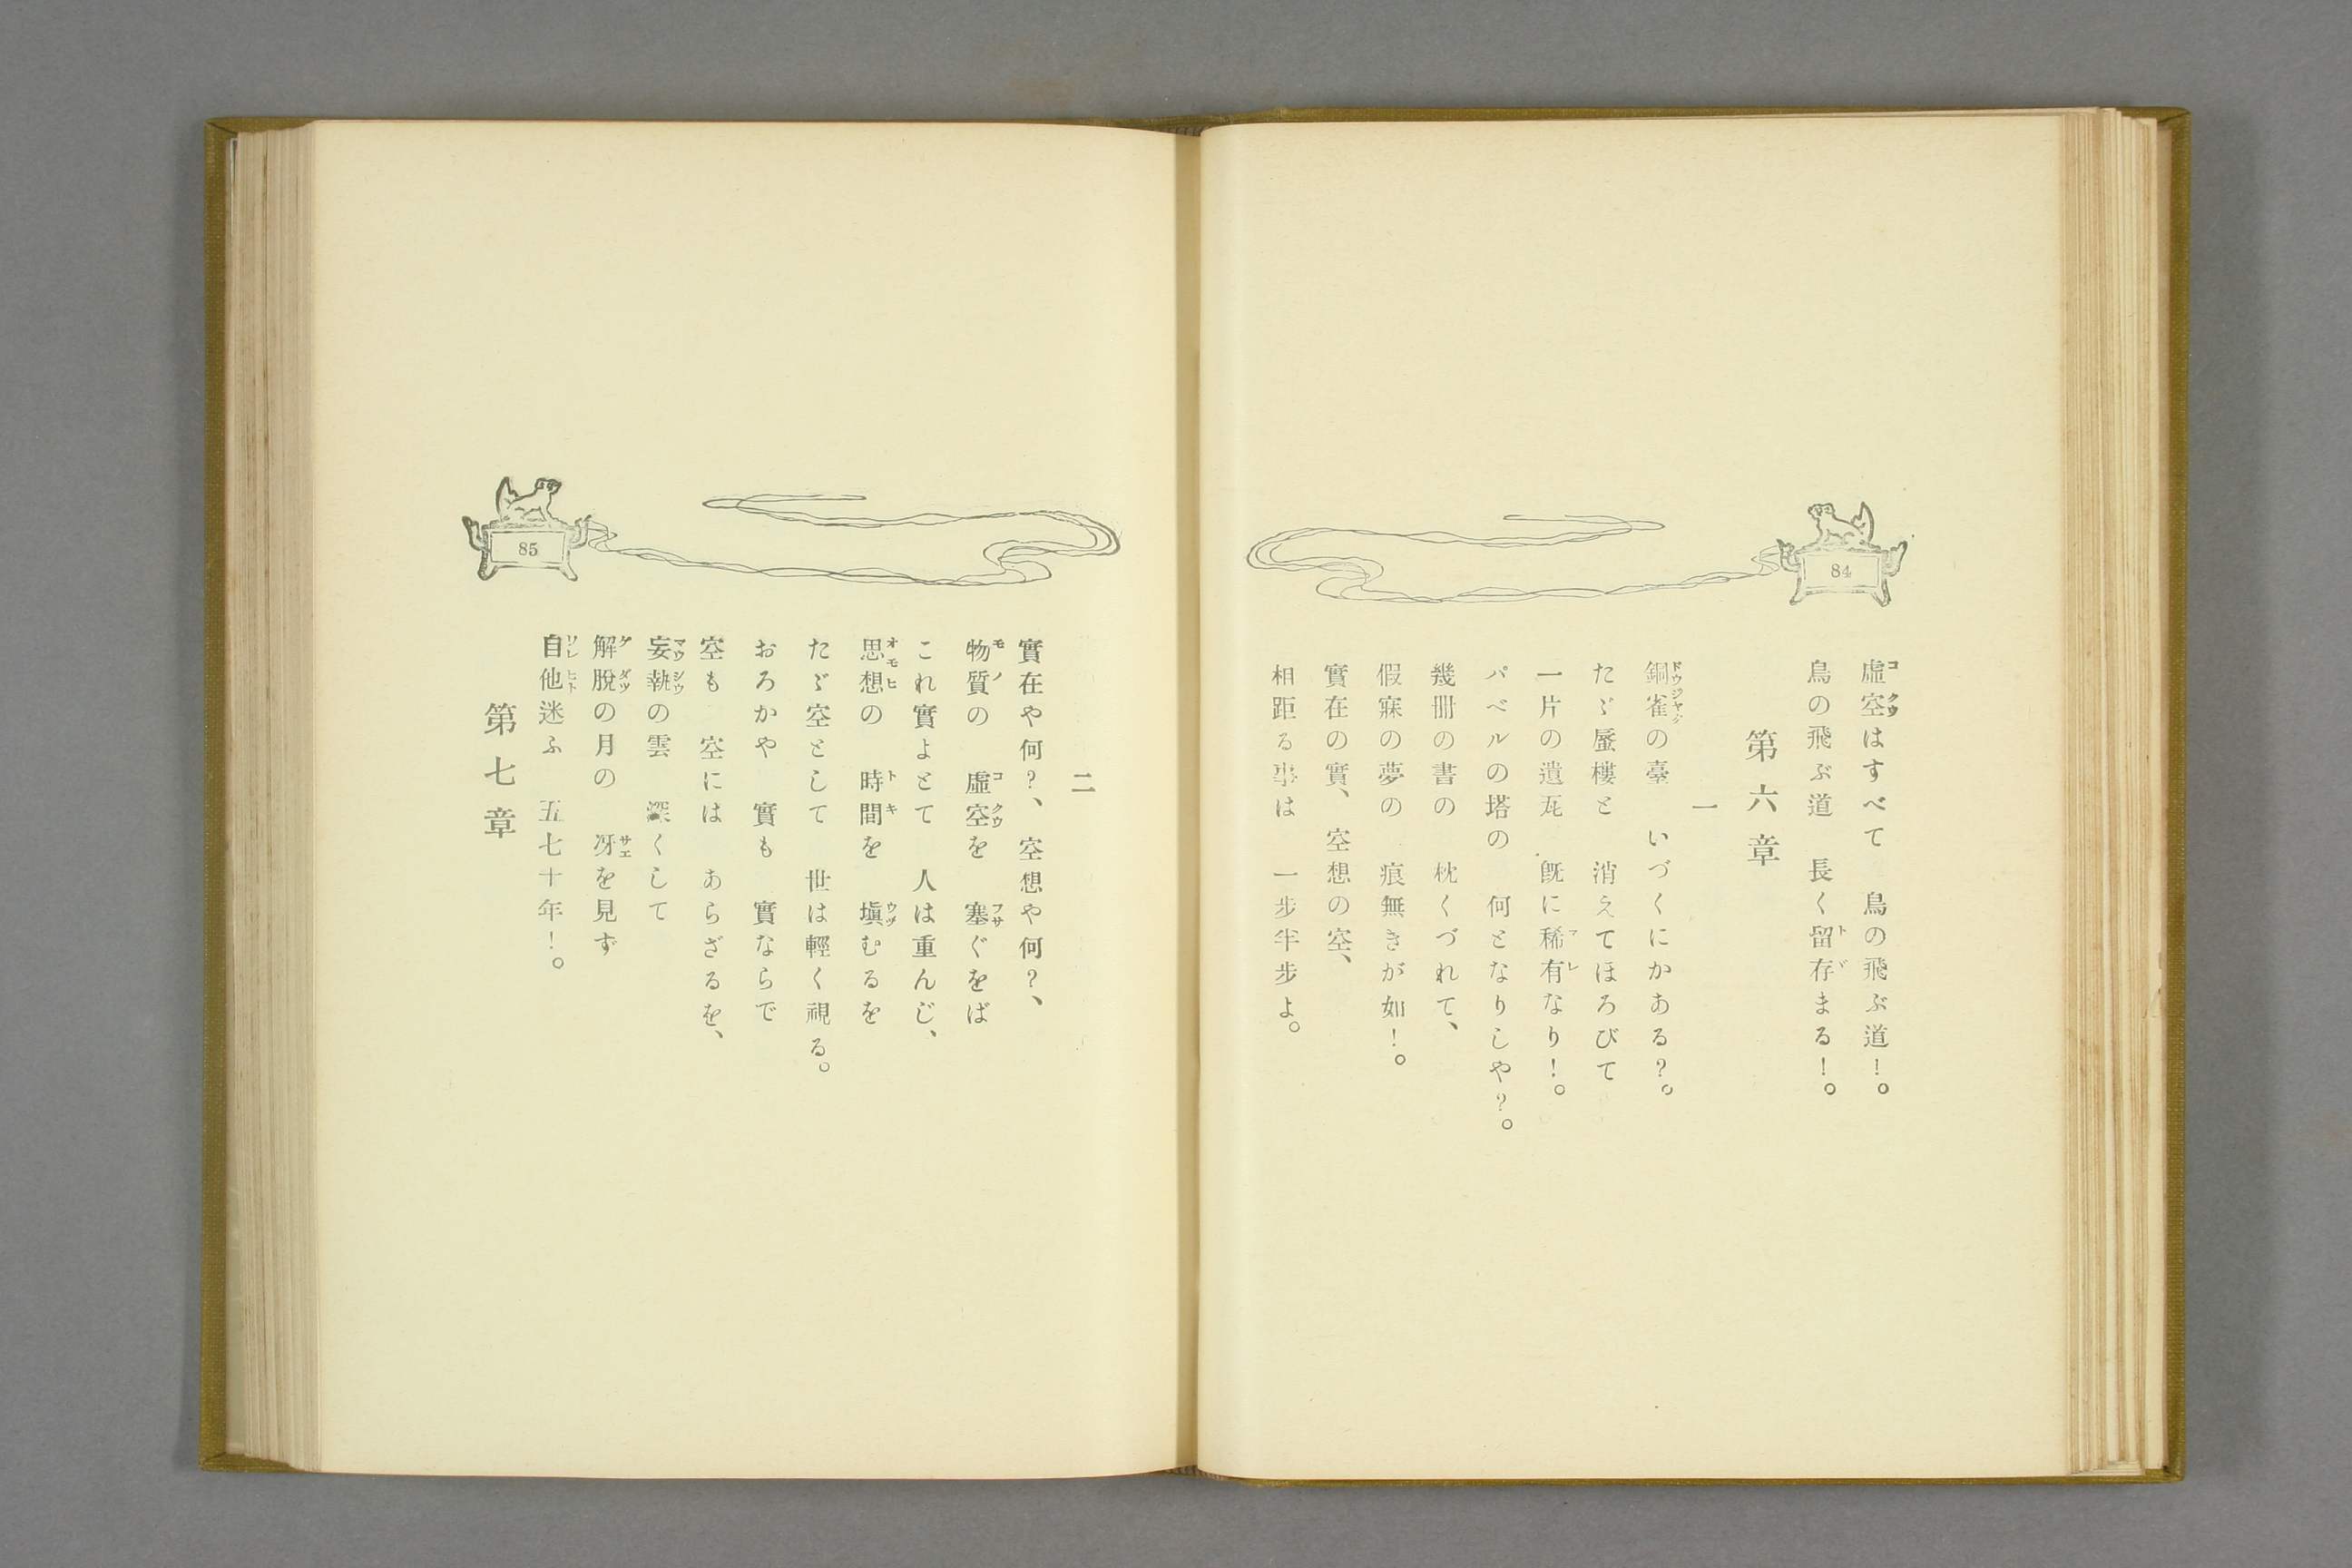 84
虛空はすべて　鳥の飛ぶ道！。
鳥の飛ぶ道　長く留存まる！。
第六章
一
銅雀の臺　いづくにかある？。
たゞ蜃樓と　消えてほろびて
一片の遺瓦　既に稀有なり！。
バベルの塔の　何となりしや？。
幾冊の書の　枕くづれて、
假寐の夢の　痕無きが如！。
實在の實、空想の空、
相距る事は　一步半步よ。
85
二
實在や何？、空想や何？、
物質の　虛空を　塞ぐをば
これ實よとて　人は重んじ、
思想の　時間を　塡むるを
たゞ空として　世は輕く視る。
おろかや　實も　實ならで
空も　空には　あらざるを、
妄執の雲　深くして
解脫の月の　冴を見ず
自他迷ふ　五七十年！。
第七章